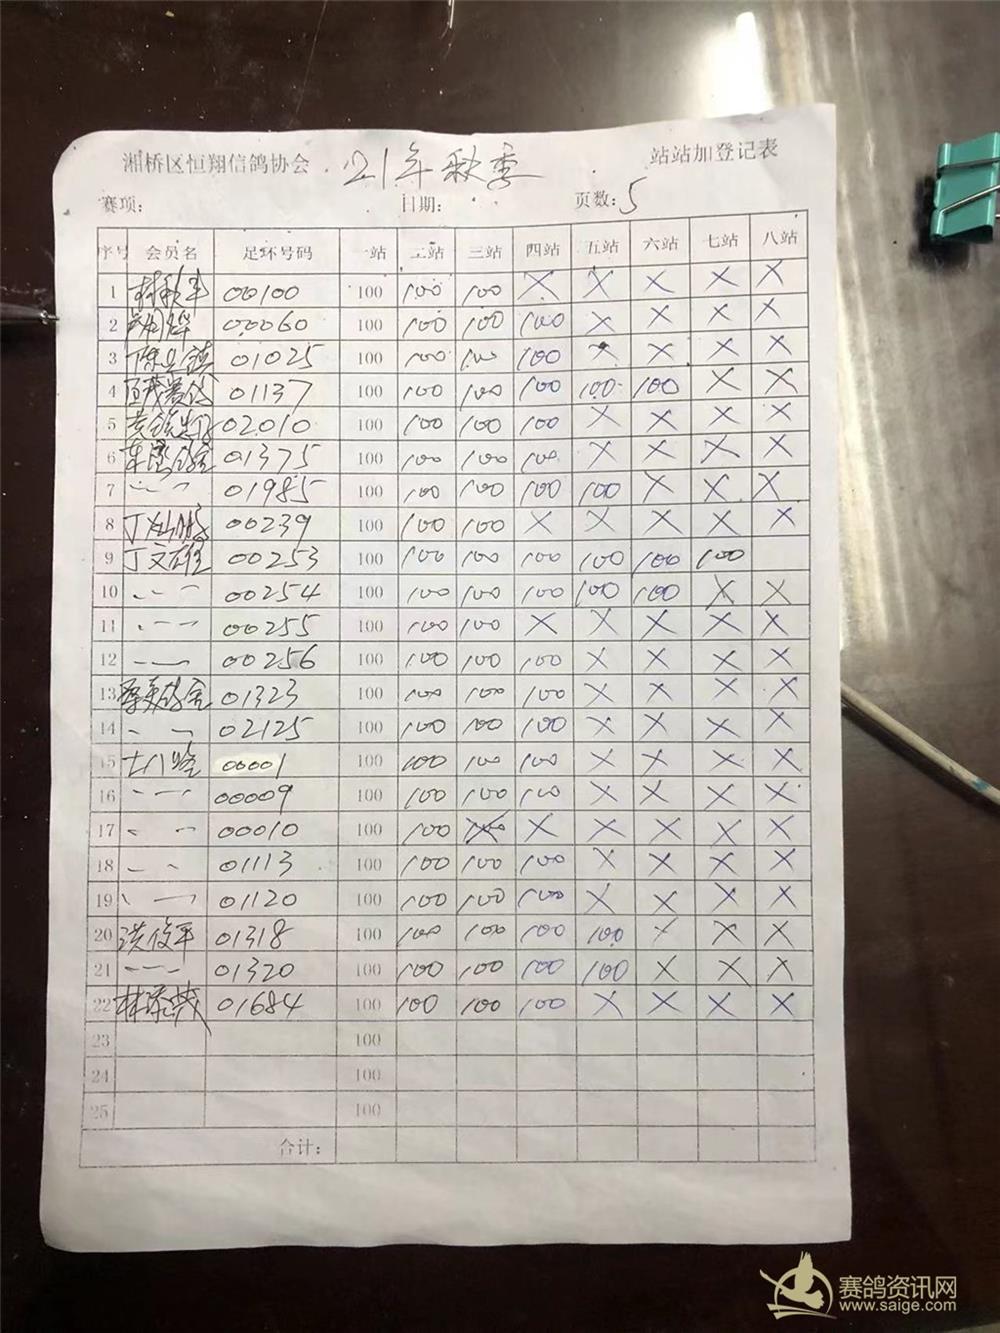 湘桥区恒翔信鸽协会 21年秋季 站站加登记表
赛项: 日期: 页数: 5
序号 会员名 足环号码 一站 二站 三站 四站 五站 六站 七站 八站
1 00100 100 100 100 X X X X X
2 00060 100 100 100 100 X X X X
3 01025 100 100 100 100 X X X X
4 01137 100 100 100 100 100 100 X X
5 02010 100 100 100 100 X X X X
6 01375 100 100 100 100 X X X X
7 〃 〃 01985 100 100 100 100 100 X X X
8 00239 100 100 100 X X X X X
9 丁文雄 00253 100 100 100 100 100 100 100
10 〃 〃 00254 100 100 100 100 100 100 X X
11 〃 〃 00255 100 100 100 X X X X X
12 〃 〃 00256 100 100 100 100 X X X X
13 01323 100 100 100 100 X X X X
14 〃 〃 02125 100 100 100 100 X X X X
15 00001 100 100 100 100 X X X X
16 〃 〃 00009 100 100 100 100 X X X X
17 〃 〃 00010 100 100 X X X X X X
18 〃 〃 01113 100 100 100 100 X X X X
19 〃 〃 01120 100 100 100 100 X X X X
20 洪俊平 01318 100 100 100 100 100 X X X
21 〃 〃 01320 100 100 100 100 100 X X X
22 01684 100 100 100 100 X X X X
23 100
24 100
25 100
合计:
赛鸽资讯网
www.saige.com